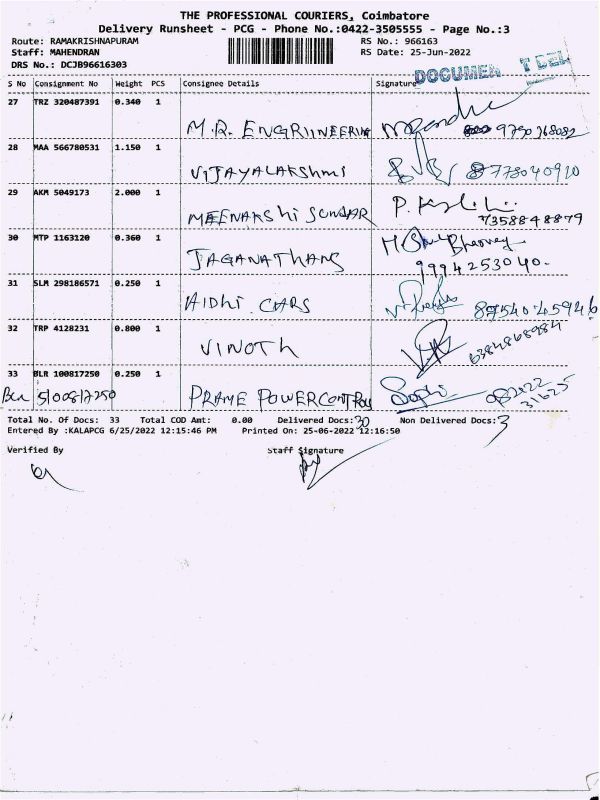 THE PROFESSIONAL COURIERS, Coimbatore
Delivery Runsheet - PCG - Phone No.:0422-3505555 - Page No.:3
Route: RAMAKRISHNAPURAM RS No.: 966163
Staff: MAHENDRAN RS Date: 25-Jun-2022
DRS No.: DCJB96616303
DOCUMEN T DEL
S No Consignment No Weight PCS Consignee Details Signature
27 TRZ 320487391 0.340 1
M.R. ENGRIINEERING 9750768082
28 MAA 566780531 1.150 1
VIJAYALAKSHMI 8778040920
29 AKM 5049173 2.000 1
MEENAKSHI SUNDAR P. 7358848879
30 MTP 1163120 0.360 1
JAGANATHANS 9994253040.
31 SLM 298186571 0.250 1
AIDHI CARS
32 TRP 4128231 0.800 1
VINOTH 6384868984
33 BLR 100817250 0.250 1
PRAME POWERCONTROLS
31625
Total No. Of Docs: 33 Total COD Amt: 0.00 Delivered Docs: 30 Non Delivered Docs: 3
Entered By :KALAPCG 6/25/2022 12:15:46 PM Printed On: 25-06-2022 12:16:50
Verified By Staff Signature